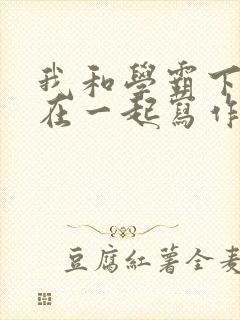 我和學霸下
在一起寫作
豆腐紅薯全麦